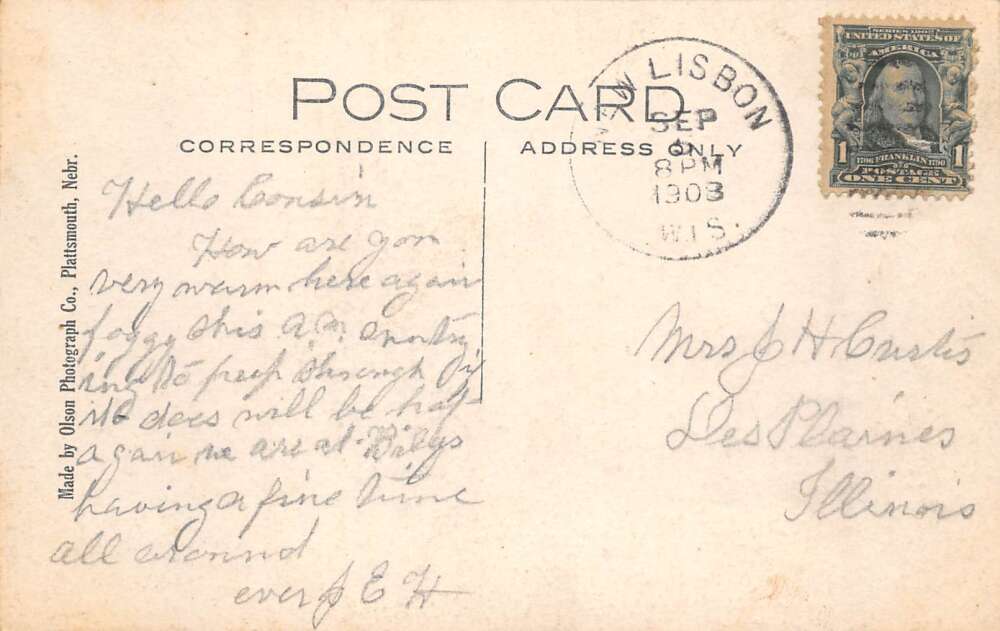 POST CARD
CORRESPONDENCE
ADDRESS ONLY
NEW LISBON
SEP
8 PM
1908
WIS.
SERIES 1902
UNITED STATES OF
AMERICA
1 1706 FRANKLIN 1790 1
POSTAGE
ONE CENT
Made by Olson Photograph Co., Plattsmouth, Nebr.
Hello Cousin
How are you
very warm here again
foggy this a.m. sun try
ing to peep through if
it does will be hot
again we are at Bilys
having a fine time
all around
ever J E H
Mrs J H Curtis
Des Plaines
Illinois